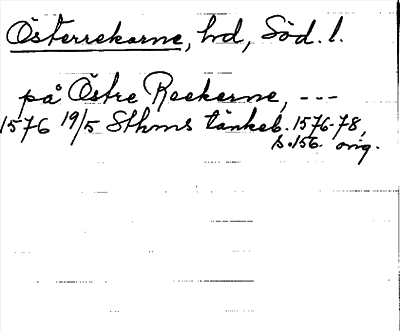 Österrekarne, hd, Söd. l.
på Östre Reekerne, ---
1576 19/5 Sthms tänkeb. 1576-78,
s. 156. orig.